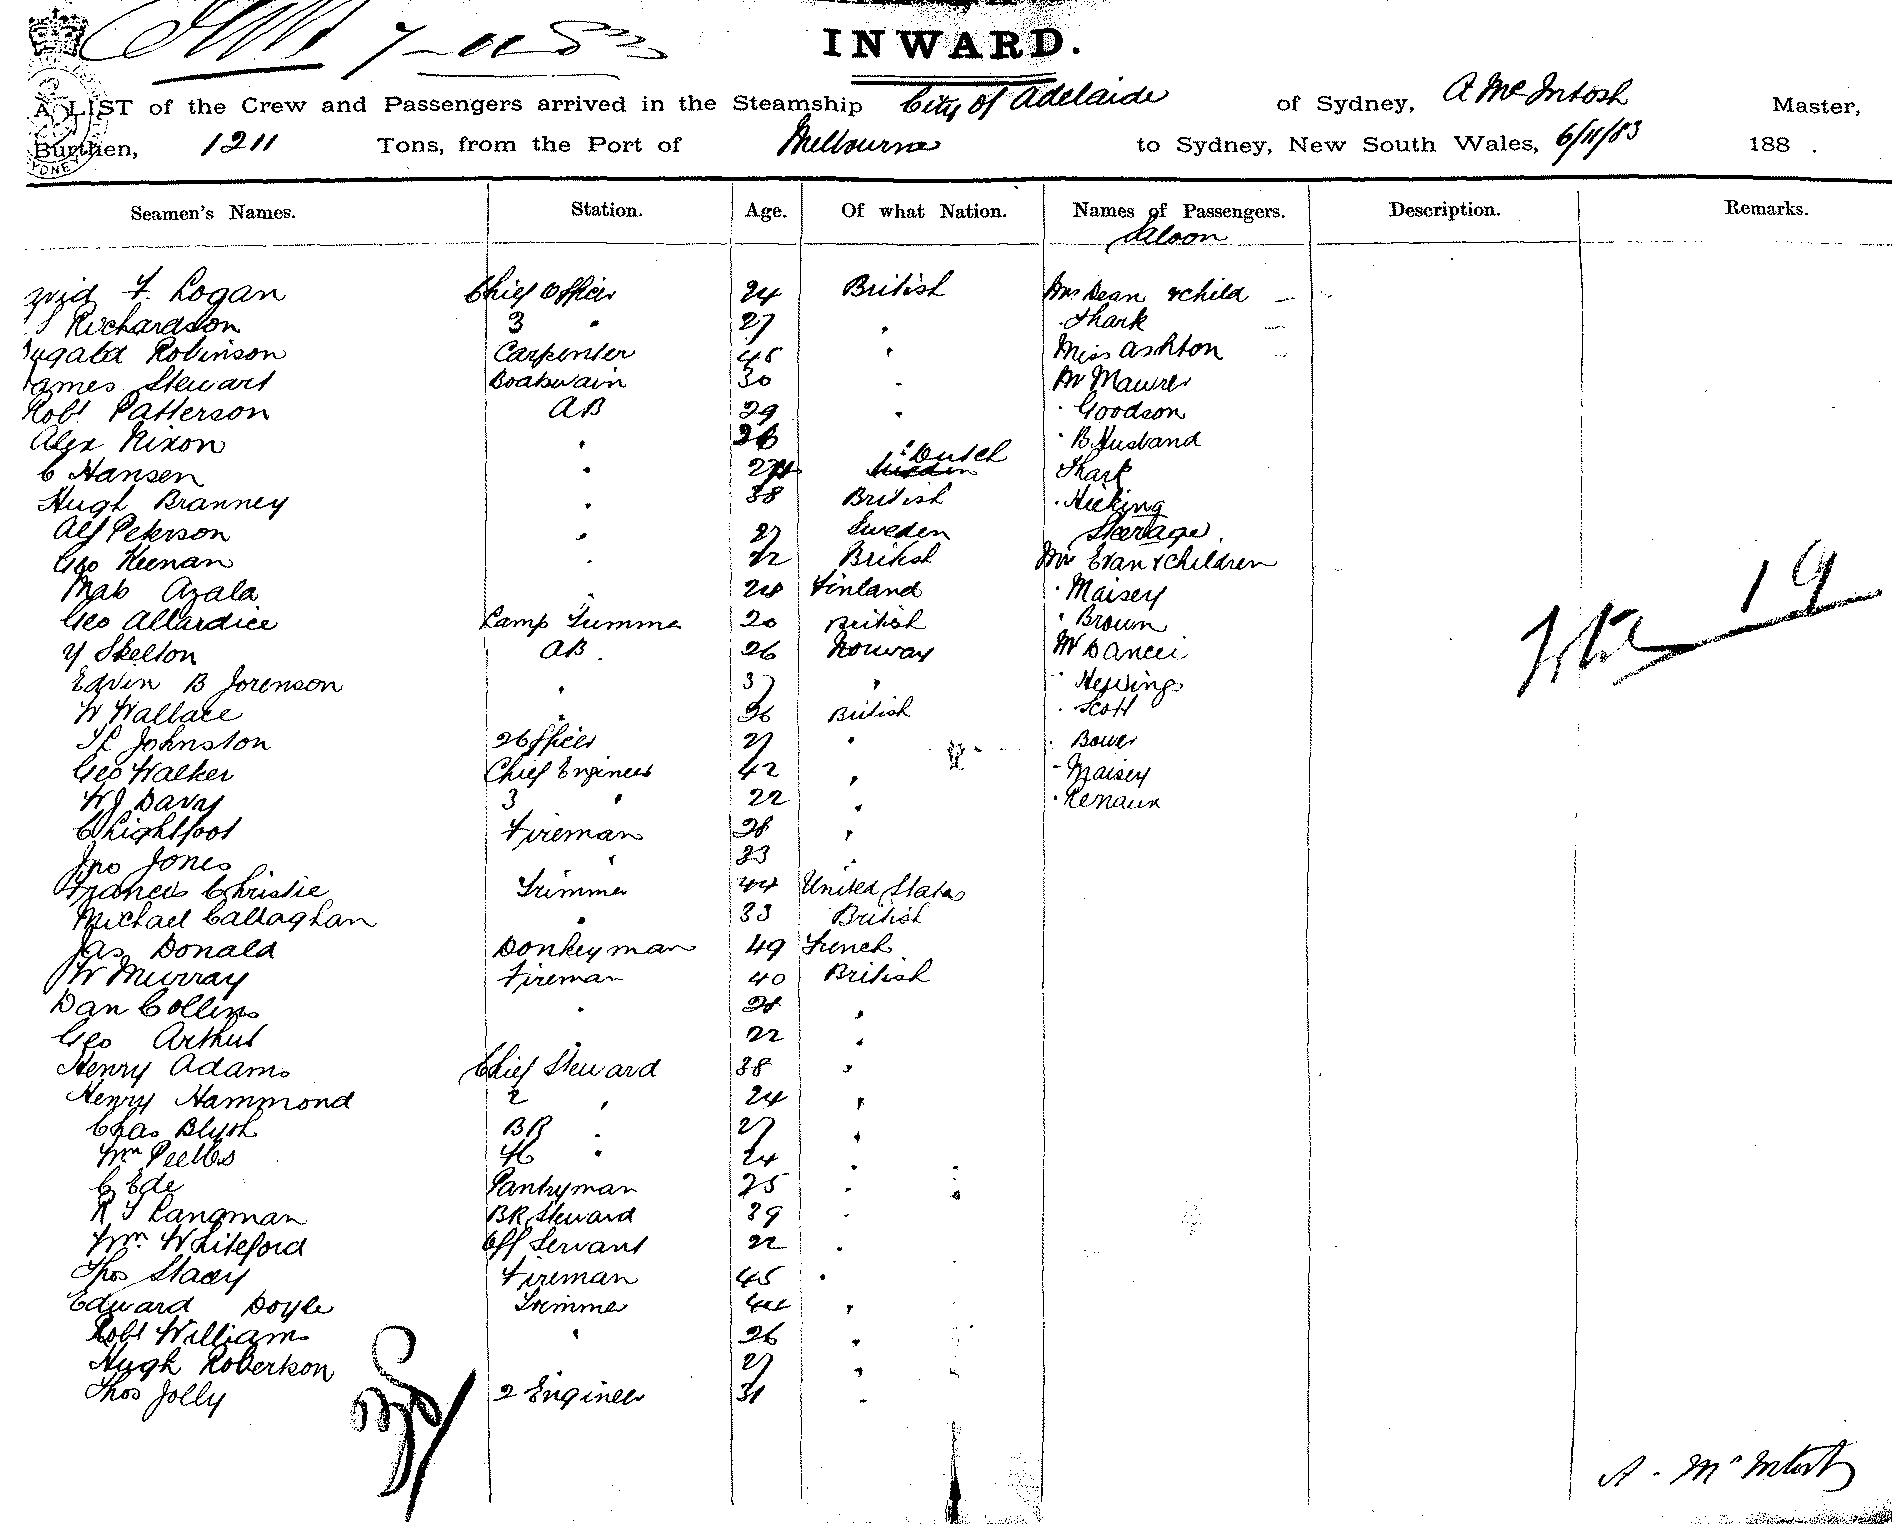 INWARD.
A LIST of the Crew and Passengers arrived in the Steamship City of Adelaide of Sydney, A McIntosh Master,
Burthen, 1211 Tons, from the Port of Melbourne to Sydney, New South Wales, 6/11/83 188 .
Seamen's Names. Station. Age. Of what Nation. Names of Passengers. Description. Remarks.
Saloon
F. Logan Chief Officer 24 British Mrs Dean & child
Richardson 3 " 27 " " Shark
Robinson Carpenter 45 " Miss Ashton
James Stewart Boatswain 30 " Mr Maurer
Robt Patterson AB 29 " " Goodson
Alex Nixon " 26 " B Husband
C Hansen " Dutch Shark
Hugh Branney " 38 British " Hicking
Alf Peterson " 27 Sweden Steerage
Geo Keenan " 22 British Mrs Evan & children
Mab Azala " 24 Finland " Maisey
Geo Allardice Lamp Trimmer 20 British " Brown
Y Skelton AB 26 Norway Mr
Edvin B Jorenson " 37 " "
W Wallace " 36 British " Scott
Johnston 2 Officer 27 " " Bower
Geo Walker Chief Engineer 42 " " Maisey
W J Davy 3 " 22 " " Renaux
C Lightfoot Fireman 28 "
Jno Jones " 33 "
Francis Christie Trimmer 44 United States
Michael Callaghan " 33 British
Jas Donald Donkeyman 49 French
W Murray Fireman 40 British
Dan Collins " 28 "
Geo Arthur " 22 "
Henry Adams Chief Steward 38 "
Henry Hammond 2 " 24 "
Chas Blyth BR " 27 "
Wm Peebles " 24 "
C Ede Pantryman 25 "
R J Langman BR Steward 39 "
Wm Whiteford Off Servant 22 "
Thos Stacy Fireman 45 "
Edward Doyle Trimmer "
Robt Williams " 26 "
Hugh Robertson 27 "
Thos Jolly 2 Engineer 31 "
Total 19
A. McIntosh